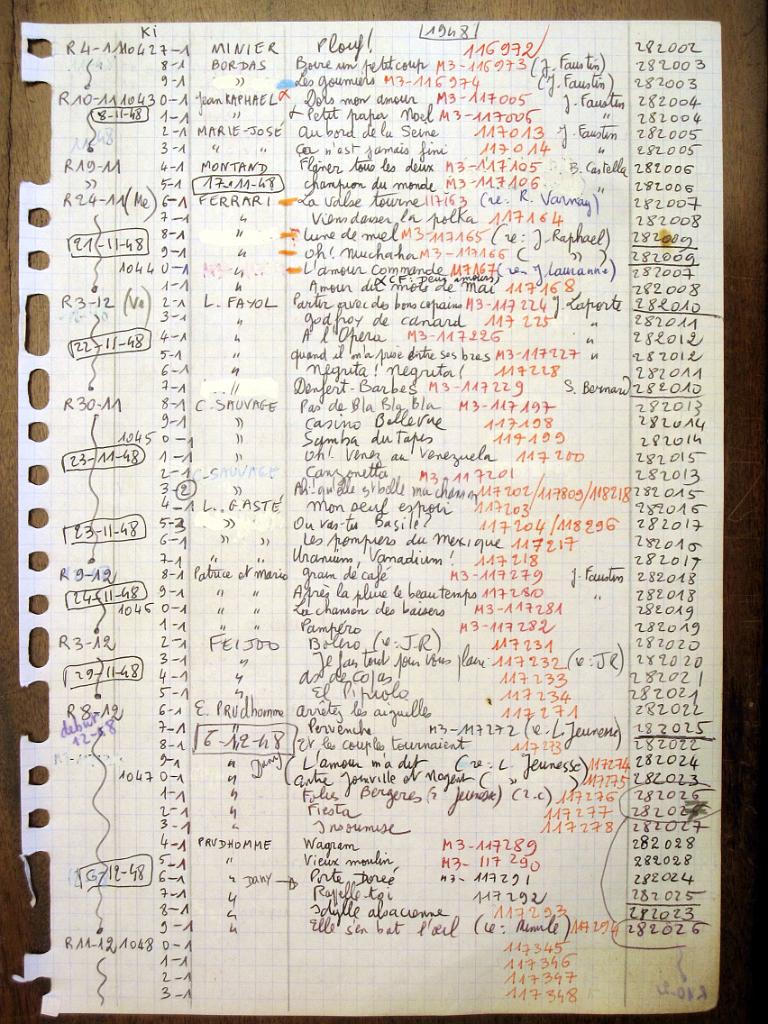 Ki 1948
R4-11 10427-1 MINIER Plouf! 116972 282002
8-1 BORDAS Boire un petit coup M3-116973 (J. Faustin) 282003
9-1 " Les goumiers M3-116974 (J. Faustin) 282003
R10-11 1043 0-1 Jean RAPHAEL Dors mon amour M3-117005 J. Faustin 282004
8-11-48 1-1 " " Petit papa Noel M3-117006 " 282004
2-1 MARIE-JOSÉ Au bord de la Seine 117013 J. Faustin 282005
3-1 " " ça n'est jamais fini 117014 " 282005
R19-11 4-1 MONTAND Flâner tous les deux M3-117105 B. Castella 282006
" 5-1 17-11-48 champion du monde M3-117106 " 282006
R24-11 (Me) 6-1 FERRARI La valse tourne 117163 (re: R. Varnay) 282007
7-1 " Viens danser la polka 117164 282008
21-11-48 8-1 Lune de miel M3-117165 (re: J. Raphael) 282009
9-1 " oh! Muchacha M3-117166 ( " ) 282009
1044 0-1 L'amour commande 117167 (re J. Lauranne) 282007
1-1 " Amour du mois de Mai 117168 282008
R3-12 (Ve) 2-1 L. FAYOL Partir avec des bons copains M3-117224 J. Laporte 282010
3-1 " godfroy de canard 117225 " 282011
22-11-48 4-1 " A l'Opéra M3-117226 " 282012
5-1 " quand il m'a prise entre ses bras M3-117227 " 282012
6-1 " Négrita! Negrita! 117228 282011
7-1 " Denfert-Barbès M3-117229 S. Bernard 282010
R30-11 8-1 C. SAUVAGE Pas de Bla Bla Bla M3-117197 282013
9-1 " Casino Bellevue 117198 282014
1045 0-1 " Samba du tapis 117199 282014
23-11-48 1-1 " oh! Venez au Venezuela 117200 282015
2-1 C. SAUVAGE Canzonetta M3-117201 282013
3-2 " Ah! qu'elle est belle ma chanson 117202/117809/118218 282015
4-1 L. GASTÉ Mon seul espoir 117203 282016
23-11-48 5-3 " Ou vas-tu Basile? 117204/118296 282017
6-1 " " Les pompiers du Mexique 117217 282016
7-1 " " Uranium, Vanadium! 117218 282017
R9-12 8-1 Patrice et Mario grain de café M3-117279 J. Faustin 282018
24-11-48 9-1 " " Après la pluie le beau temps 117280 " 282018
1046 0-1 " " La chanson des baisers M3-117281 282019
1-1 " " Pampéro M3-117282 282019
R3-12 2-1 FEIJOO Boléro (re: J-R) 117231 282020
3-1 " Je fais tout pour vous plaire 117232 (re: JR) 282020
29-11-48 4-1 " as de copas 117233 282021
5-1 " El Pipiolo 117234 282021
R8-12 6-1 E. PRUdhomme arrêtez les aiguilles 117271 282022
debut 12-48 7-1 " Pervenche M3-117272 (re: L. Jeunesse) 282025
8-1 6-12-48 Et les couples tournaient 117273 282022
9-1 " Dany L'amour m'a dit (re: L. Jeunesse) 117274 282024
1047 0-1 " entre Joinville et Nogent ( " " ) 117275 282023
1-1 " Folies Bergères (? Jeunesse) (2.c) 117276 282026
2-1 " Fiesta 117277 282027
3-1 " Insoumise 117278 282027
4-1 PRUDHOMME Wagram M3-117289 282028
5-1 " Vieux moulin M3-117290 282028
6-12-48 6-1 " DANY Porte Dorée M3-117291 282024
7-1 " Rappelle-toi 117292 282025
8-1 " Idylle alsacienne 117293 282023
9-1 " Elle s'en bat l'oeil (re: Minule) 117294 282026
R11-12 1048 0-1 117345
1-1 117346
2-1 117347
3-1 117348